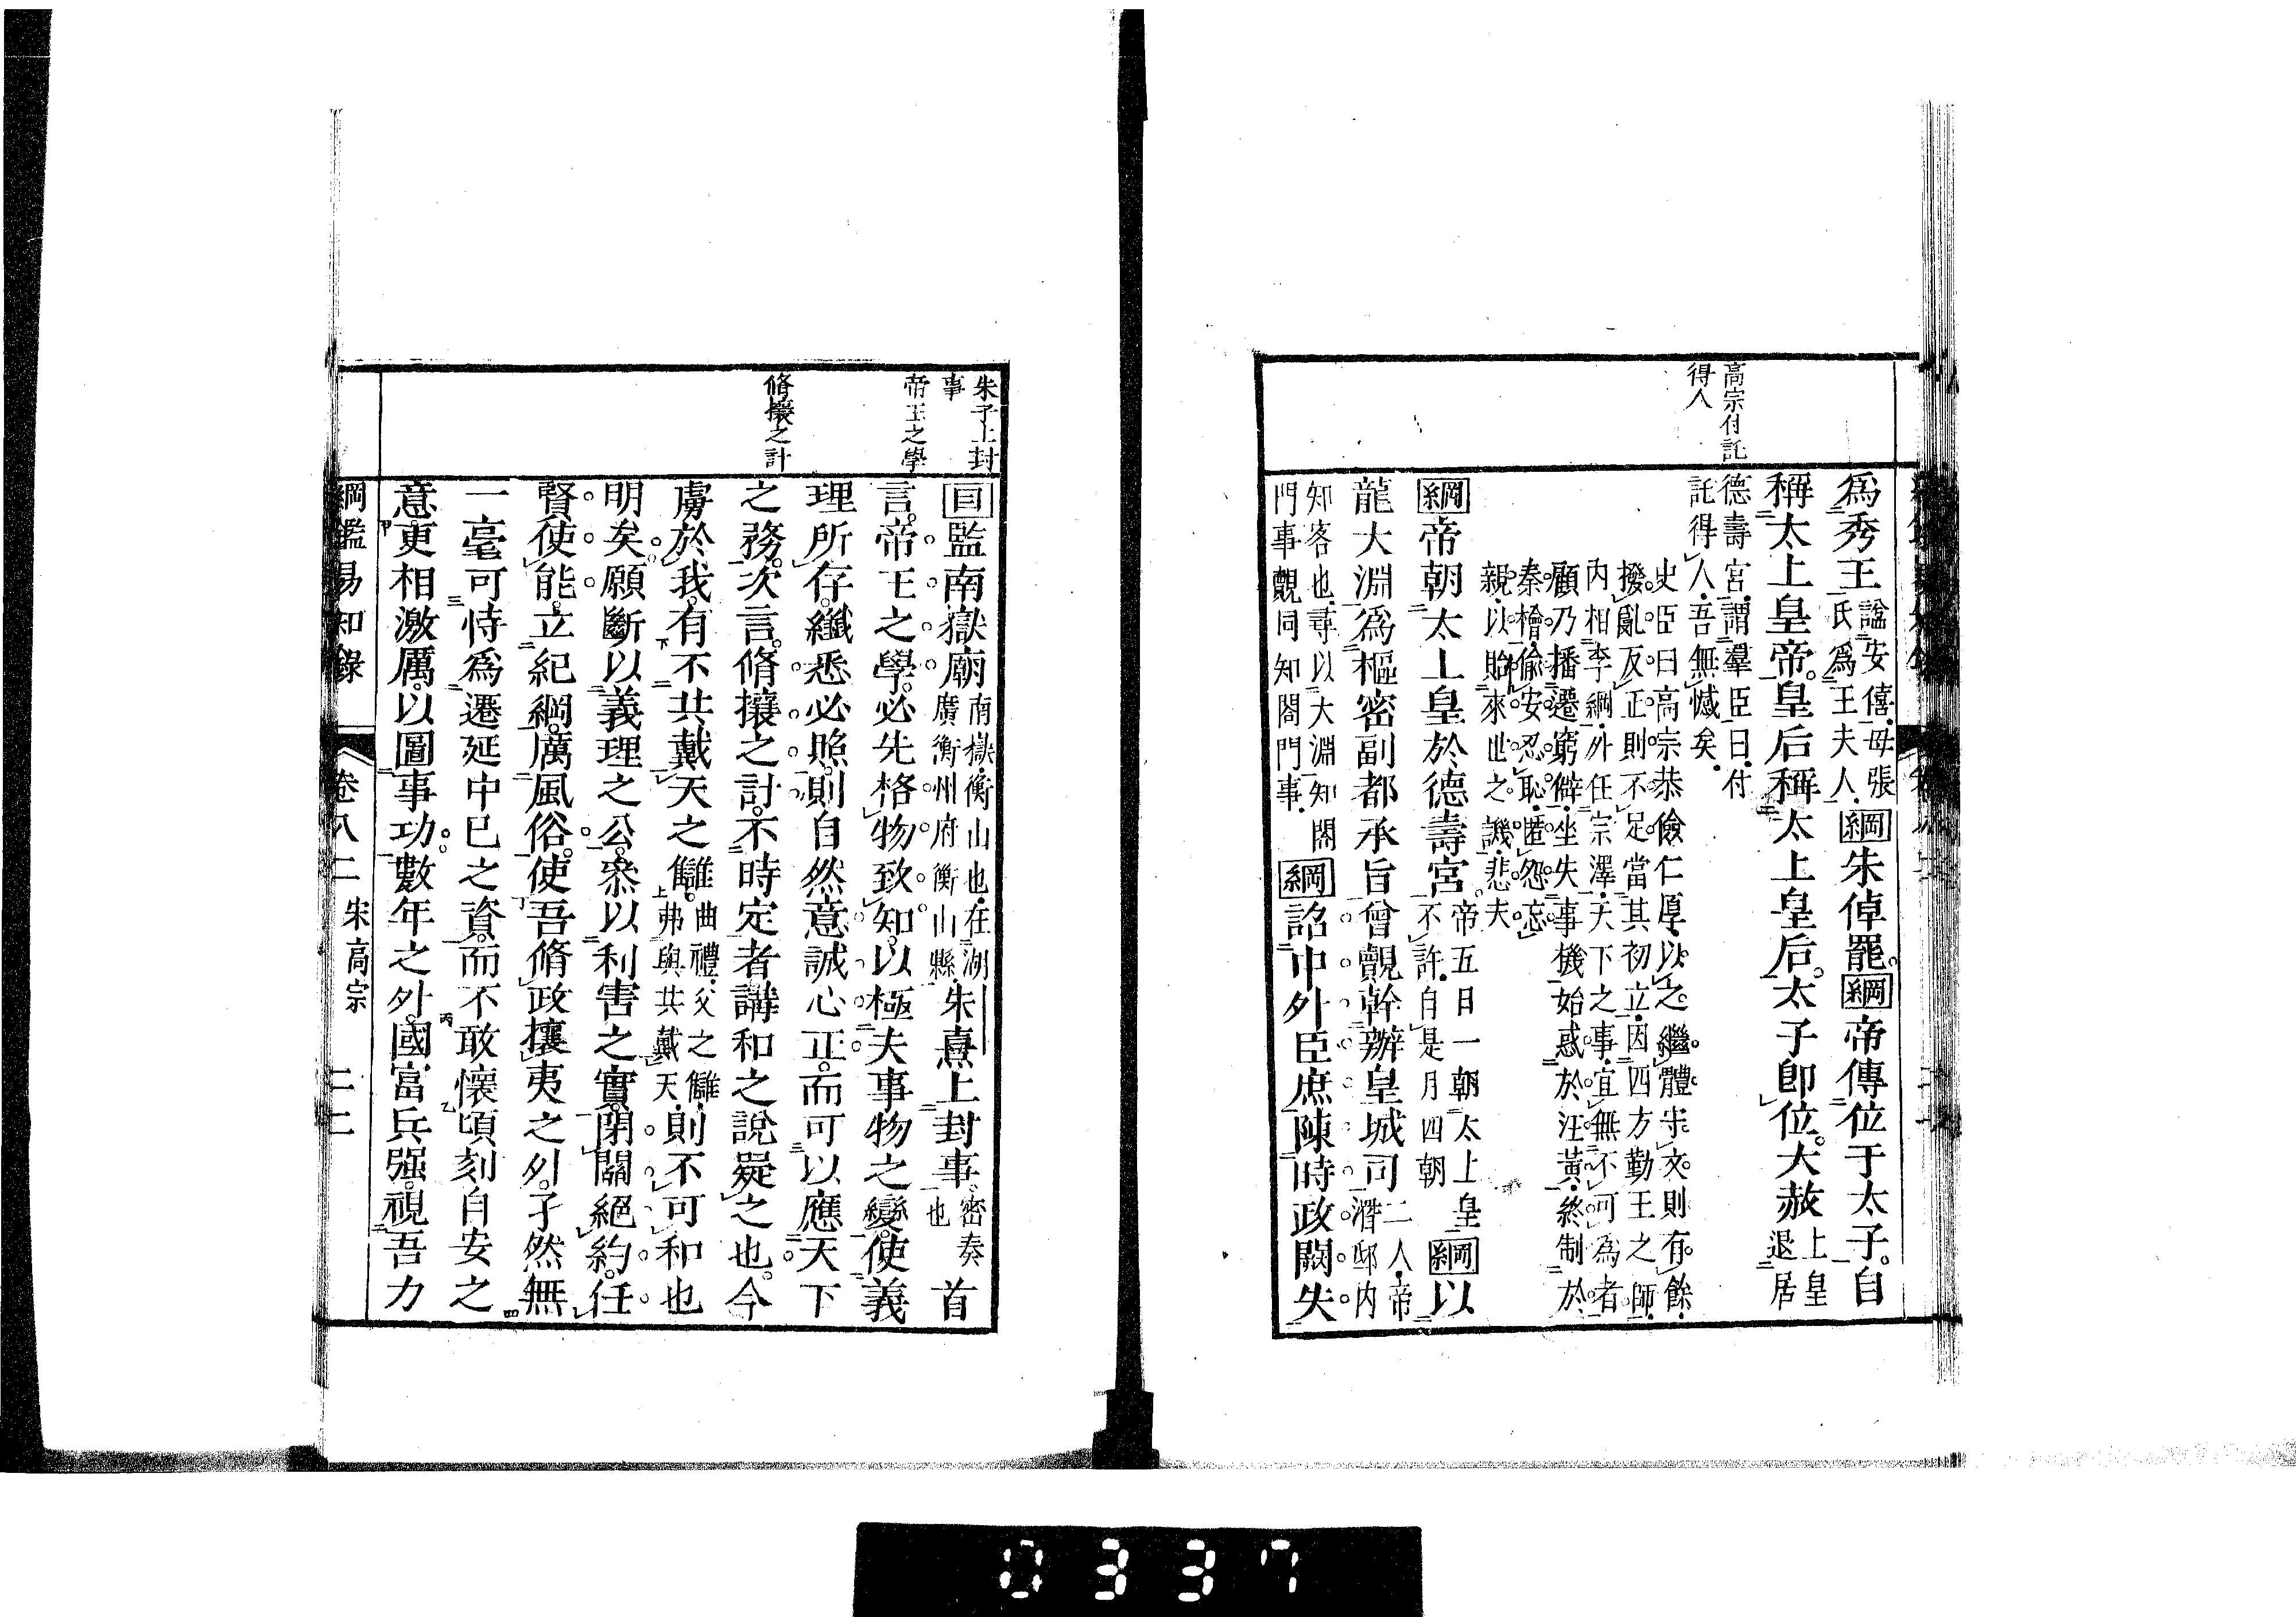 高宗付託
得人
爲秀王諡安僖毋張氏爲王夫人綱朱倬罷綱帝傳位于太子自
稱太上皇帝皇后稱太上皇后太子卽位大赦上皇退居
德壽宮謂羣臣曰付
託得人吾無憾矣
史臣曰高宗恭儉仁厚以之繼體守文則有餘
撥亂反正則不足當其初立因四方勤王之師
内相李綱外任宗澤天下之事宜無不可為者
顧乃播遷窮僻坐失事機始惑於汪黃終制於
秦檜偷安忍恥匿怨忘
親以貽來世之譏悲夫
綱帝朝太上皇於德壽宮帝五日一朝太上皇不許自是月四朝綱以
龍大淵爲樞密副都承旨曾覿幹辦皇城司二人帝潛邸内
知客也尋以大淵知閤
門事覿同知閤門事綱詔中外臣庶陳時政闕失
朱子上封
事
帝王之學
脩攘之計
目監南嶽廟南嶽衡山也在湖廣衡州府衡山縣朱熹上封事密奏也首
言帝王之學必先格物致知以極夫事物之變使義
理所存纖悉必照則自然意誠心正而可以應天下
之務次言脩攘之計不時定者講和之說疑之也今
虜於我有不共戴天之讎曲禮父之讎弗與共戴天則不可和也
明矣願斷以義理之公叅以利害之實閉關絕約任
賢使能立紀綱厲風俗使吾脩政攘夷之外孑然無
一毫可恃爲遷延中已之資而不敢懷頃刻自安之
意更相激厲以圖事功數年之外國富兵强視吾力
綱鑑易知錄 卷八二 宋高宗 二二
0337